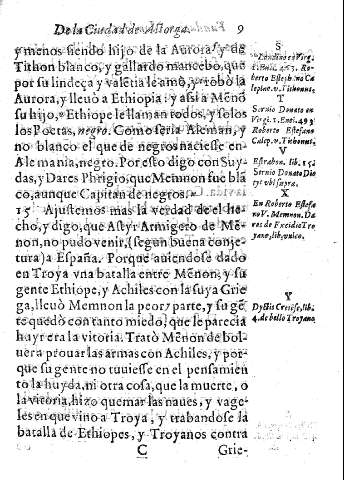 De la Ciudad de Astorga. 9
y menos siendo hijo de la Aurora, y de
Tithon blanco, y gallardo mancebo, que
por su lindeça y valẽtia le amò, y robò la
Aurora, y lleuò a Ethiopia: y assi a Mẽnõ
su hijo, Ethiope le llaman todos, y solos
los Poetas, negro. Como seria Aleman, y
no blanco el que de negros naciesse en
Alemania, negro. Por esto digo con Suy-
das, y Dares Phrigio, que Memnon fue blã
co, aunque Capitan de negros.
15 Ajustemos mas la verdad del he-
cho, y digo, que Astyr Armigero de Mẽ-
non, no pudo venir, (segun buena conje-
tura) a España. Porque auiendose dado
en Troya vna batalla entre Mẽnon, y su
gente Ethiope, y Achiles con la suya Grie
ga, lleuò Memnon la peor parte, y su gẽ
te quedò con tanto miedo, que le parecia
huyr era la vitoria. Tratò Mẽnon de bol-
uer a prouar las armas con Achiles, y por-
que su gente no tuuiesse en el pensamien
to la huyda, ni otra cosa, que la muerte, o
la vitoria, hizo quemar las naues, y vage-
les en que vino a Troya, y trabandose la
batalla de Ethiopes, y Troyanos contra
C Grie-
S
Landino en Virg.
1. Enei. 463. Ro-
berto Esteph. no Ca
lepino. v. Tithonus.
T
Seruio Donato en
Virg. 1. Enei. 493
Roberto Estefano
Calep. v. Tithonus.
V
Estrabon. lib. 15.
Seruio Donato Dio
y vbi supra.
X
En Roberto Estefa
no V. Memnon. Da
res de Excidio Tro
yano, lib. vnico.
Y
Dyctis Cretẽse, lib.
4. de bello Troyano.